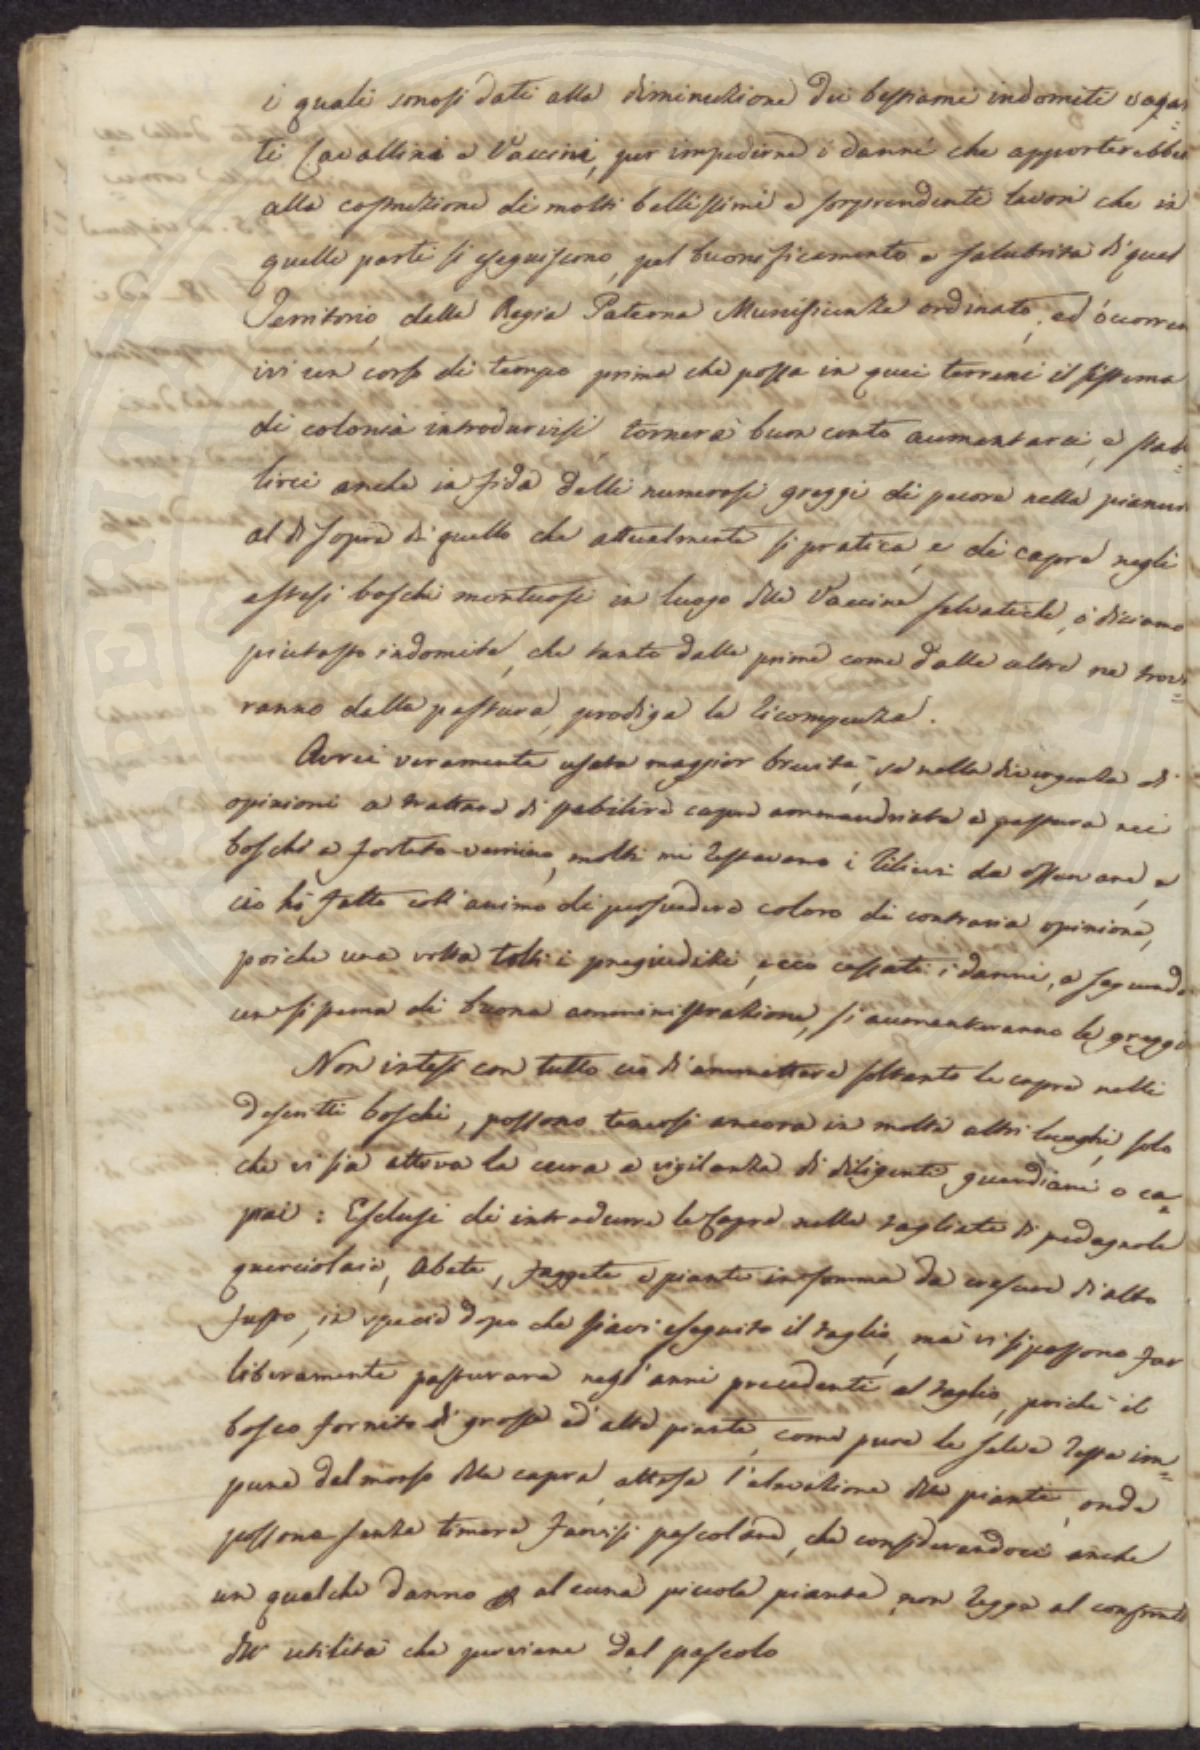 i quali sonosi dati alla diminuzione dei bestiami indomiti vagan=
ti Cavallini e Vaccini, per impedirne i danni che apporterebber
alla costruzione di molti bellissimi e sorprendenti lavori che in
quelle parti si eseguiscono, pel buonificamento e salubrità di quel
Territorio, dalla Regia Paterna Munificenza ordinato; ed occorren
ivi un corso di tempo prima che possa in quei terreni il sistema
di colonia introdurvisi, tornerà buon conto aumentarci, e stabi=
lirci anche in fida delli numerosi greggi di pecore nella pianur
al di sopra di quello che attualmente si pratica, e di capre negli
estesi boschi montuosi in luogo delle Vaccine salvatiche, o diciamo
piutosto indomite, che tanto dalle prime come dalle altre ne trove=
ranno dalla pastura prodiga la ricompenza.
Avrei veramente usata maggior brevità, se nella divergenza di
opinioni a trattare di stabilire capre ammandriate a pastura nei
boschi a forteto molti mi restavano i rilievi da osservare, e
ciò hò fatto coll'animo di persuadere coloro di contraria opinione,
poiche una volta tolti i pregiudizi, ecco cessati i danni, e seguendo
un sistema di buona amministrazione, si aumenteranno le greggi
Non intesi con tutto ciò d'ammettere soltanto le capre nelli
descritti boschi, possono tenersi ancora in molti altri luoghi, solo
che vi sia attiva la cura e vigilanza di diligenti guardiani o ca=
prai: Esclusi di introdurre le Capre nelle tagliate di pedagnole
querciolaie, Abete, faggete e piante in somma da crescere d'alto
fusto, in specie dopo che siavi eseguito il taglio, mà vi si possono far
liberamente pasturare negl'anni precedenti al taglio, poichè il
bosco fornito di grosse ed alte piante, come pure le selve resta im=
pune dal morso delle capre, attesa l'elevazione delle piante, onde
possono senza timore farvisi pascolare, che considerandoci anche
un qualche danno al cuna piccola pianta, non regge al confronto
dell'utilità che perviene dal pascolo